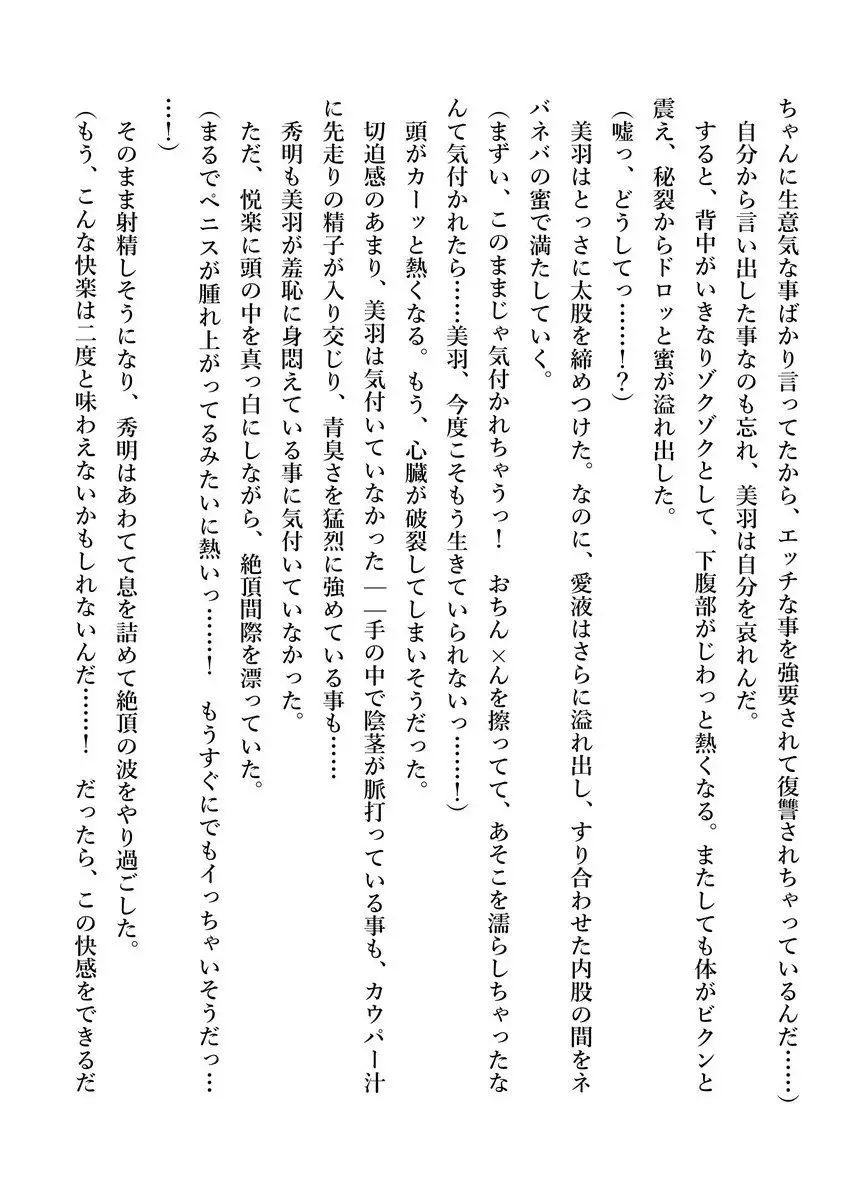 ちゃんに生意気な事ばかり言ってたから、エッチな事を強要されて復讐されちゃっているんだ……)
自分から言い出した事なのも忘れ、美羽は自分を哀れんだ。
すると、背中がいきなりゾクゾクとして、下腹部がじわっと熱くなる。またしても体がビクンと
震え、秘裂からドロッと蜜が溢れ出した。
(嘘っ、どうしてっ……!?)
美羽はとっさに太股を締めつけた。なのに、愛液はさらに溢れ出し、すり合わせた内股の間をネ
バネバの蜜で満たしていく。
(まずい、このままじゃ気付かれちゃうっ! おちん×んを擦ってて、あそこを濡らしちゃったな
んて気付かれたら……美羽、今度こそもう生きていられないっ……!)
頭がカーッと熱くなる。もう、心臓が破裂してしまいそうだった。
切迫感のあまり、美羽は気付いていなかった――手の中で陰茎が脈打っている事も、カウパー汁
に先走りの精子が入り交じり、青臭さを猛烈に強めている事も……
秀明も美羽が羞恥に身悶えている事に気付いていなかった。
ただ、悦楽に頭の中を真っ白にしながら、絶頂間際を漂っていた。
(まるでペニスが腫れ上がってるみたいに熱いっ……! もうすぐにでもイっちゃいそうだっ…
…!)
そのまま射精しそうになり、秀明はあわてて息を詰めて絶頂の波をやり過ごした。
(もう、こんな快楽は二度と味わえないかもしれないんだ……! だったら、この快感をできるだ